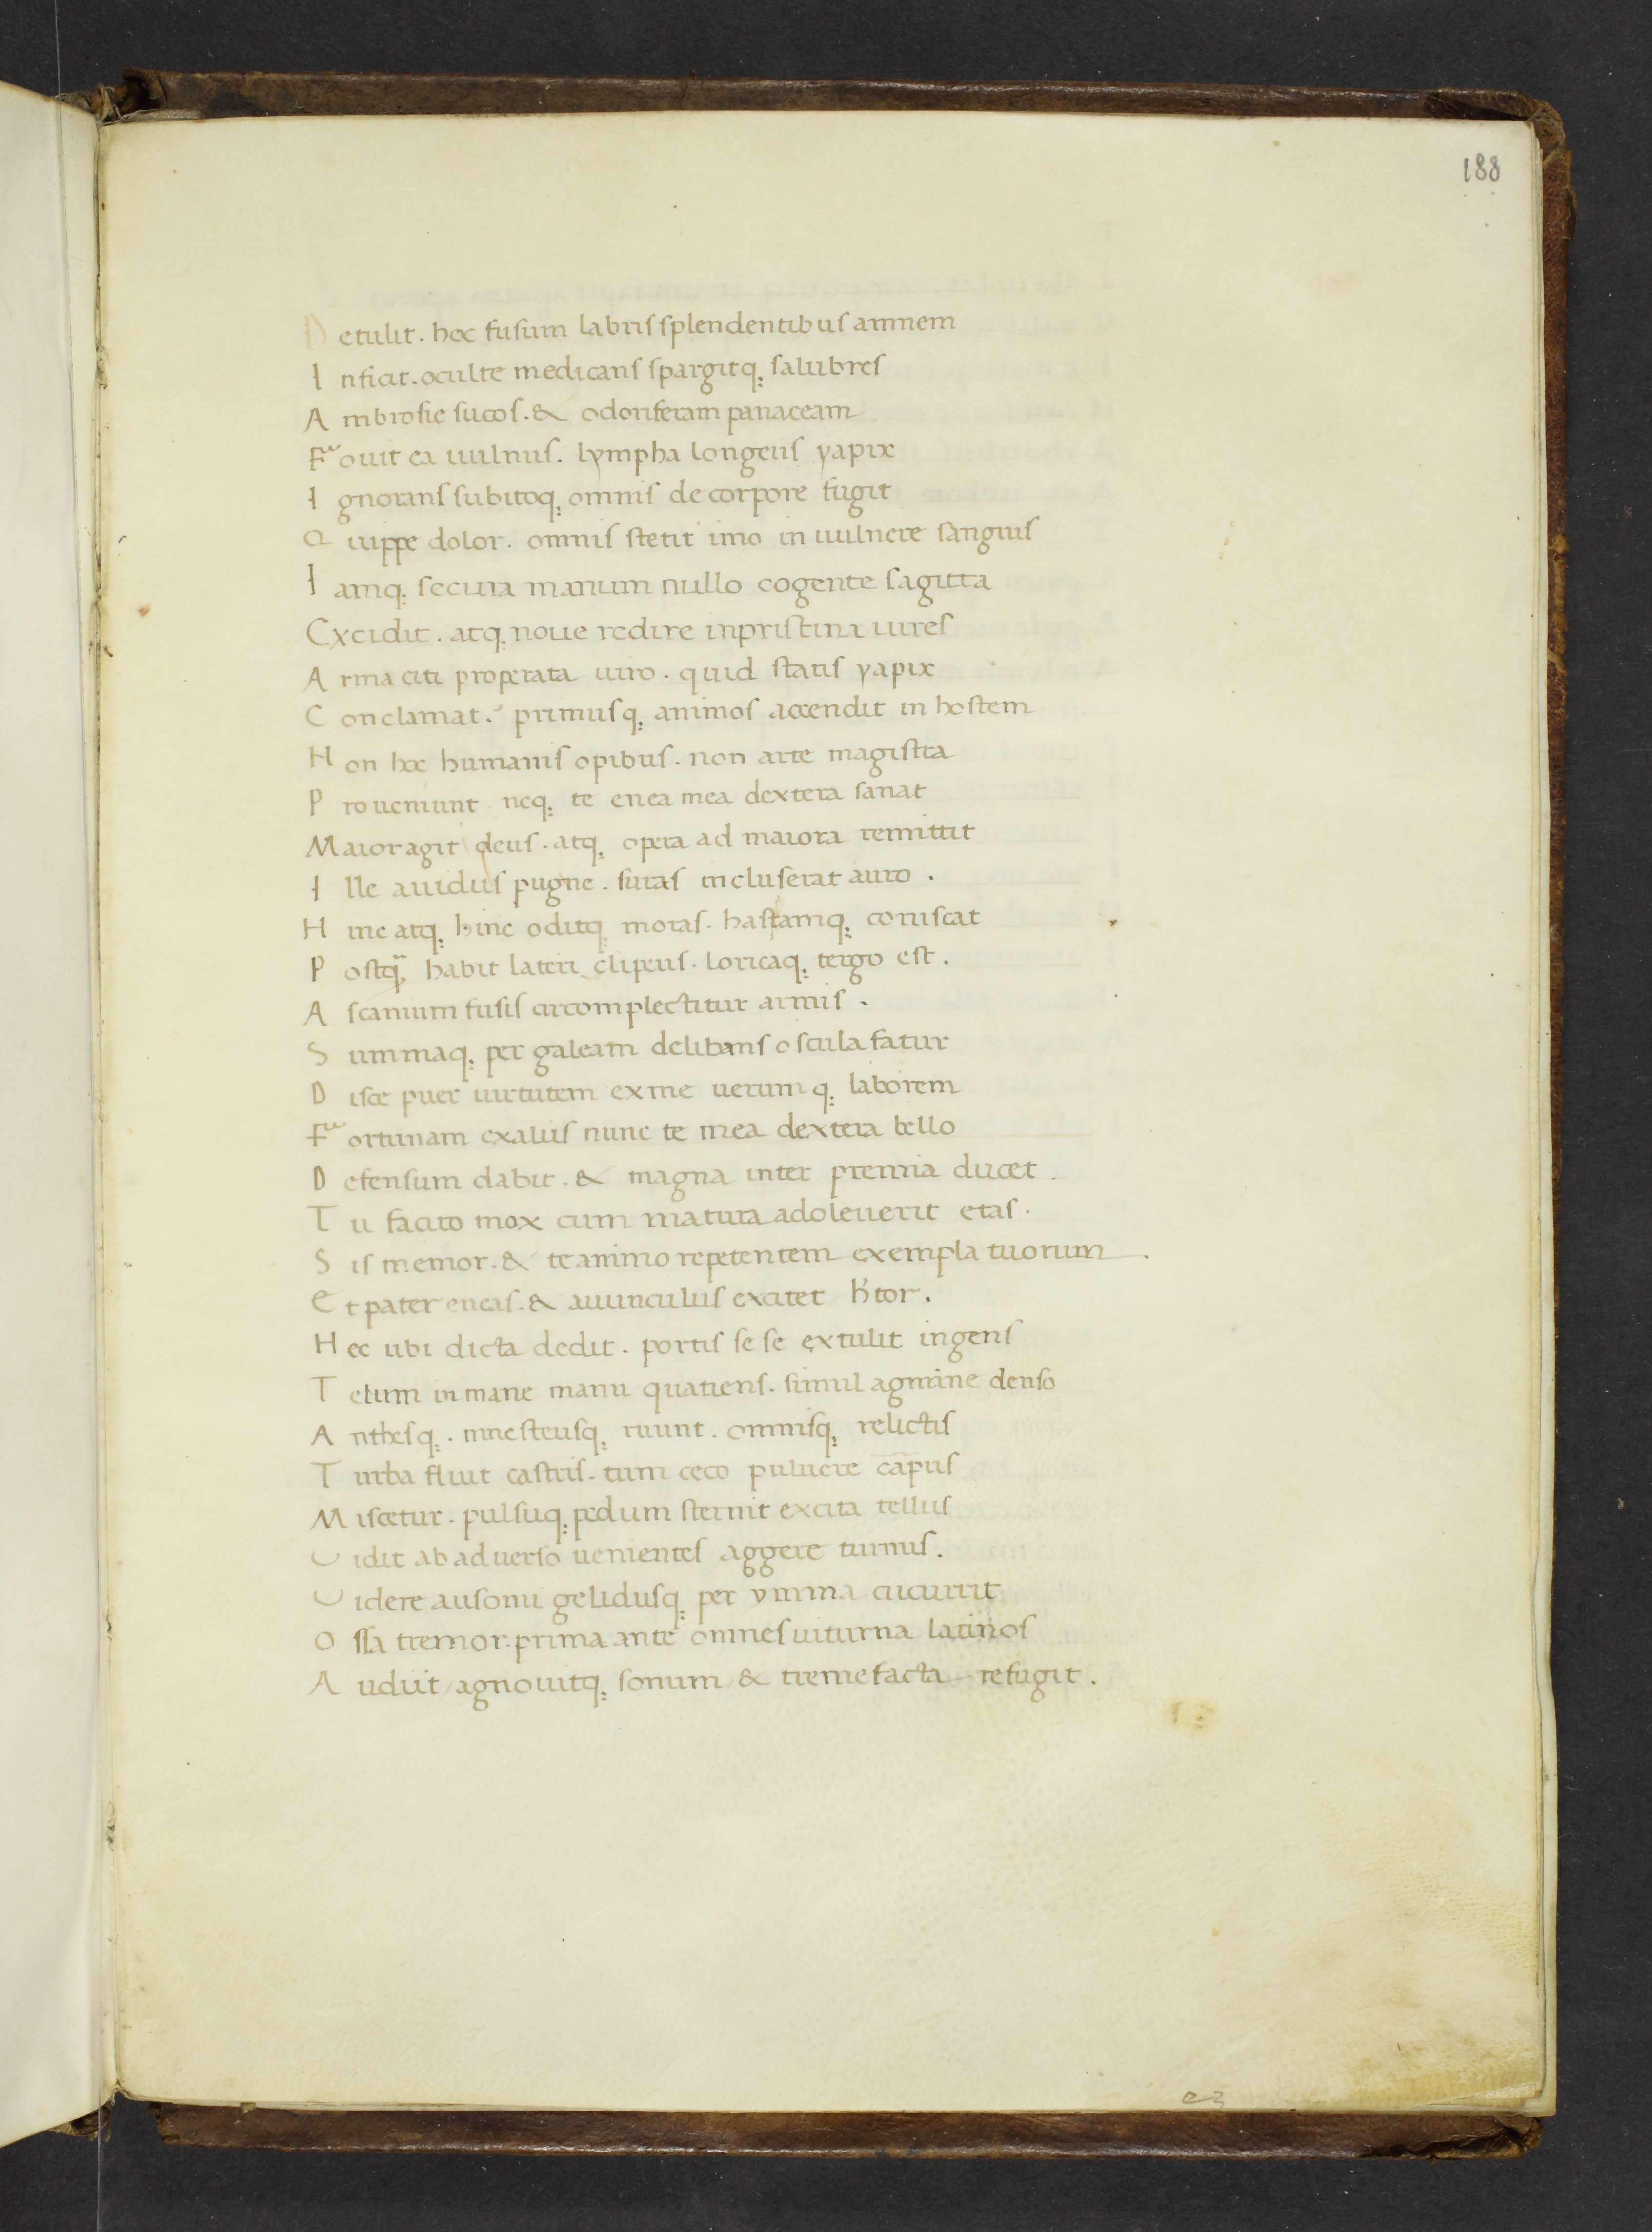 188
Detulit. hoc fusum labris splendentibus amnem
Inficit. oculte medicans spargitq; salubres
Ambrosie sucos. & odoriferam panaceam
Fouit ea uulnus. lympha longeus yapix
Ignorans subitoq; omnis de corpore fugit
Quippe dolor. omnis stetit imo in uulnere sanguis
Iamq; secuta manum nullo cogente sagitta
Excidit. atq; noue redire in pristina uires
Arma citi properata uiro. quid statis yapix
Conclamat. primusq; animos accendit in hostem
Non hoc humanis opibus. non arte magistra
Proueniunt neq; te enea mea dextera sanat
Maior agit deus. atq; opera ad maiora remittit
Ille auidus pugne. suras incluserat auro.
Hinc atq; hinc oditq; moras. hastamq; coruscat
Postq̃ habit lateri clipeus. loricaq; tergo est.
Ascanium fusis circomplectitur armis.
Summaq; per galeam delibans oscula fatur
Disce puer uirtutem ex me uerumq; laborem
Fortunam ex aliis nunc te mea dextera bello
Defensum dabit. & magna inter premia ducet.
Tu facito mox cum matura adoleuerit etas.
Sis memor. & te animo repetentem exempla tuorum.
Et pater eneas. & auunculus excitet h̓tor.
Hec ubi dicta dedit. portis se se extulit ingens
Telum in mane manu quatiens. simul agmine denso
Anthesq;. mnesteusq; ruunt. omnisq; relictis
Turba fluit castris. tum ceco puluere cãpus
Miscetur. pulsuq; pedum sternit excita tellus
Vidit ab aduerso uenientes aggere turnus.
Videre ausonii gelidusq; per ymma cucurrit
Ossa tremor. prima ante omnes uiturna latinos
Audiit agnouitq; sonum & tremefacta refugit.